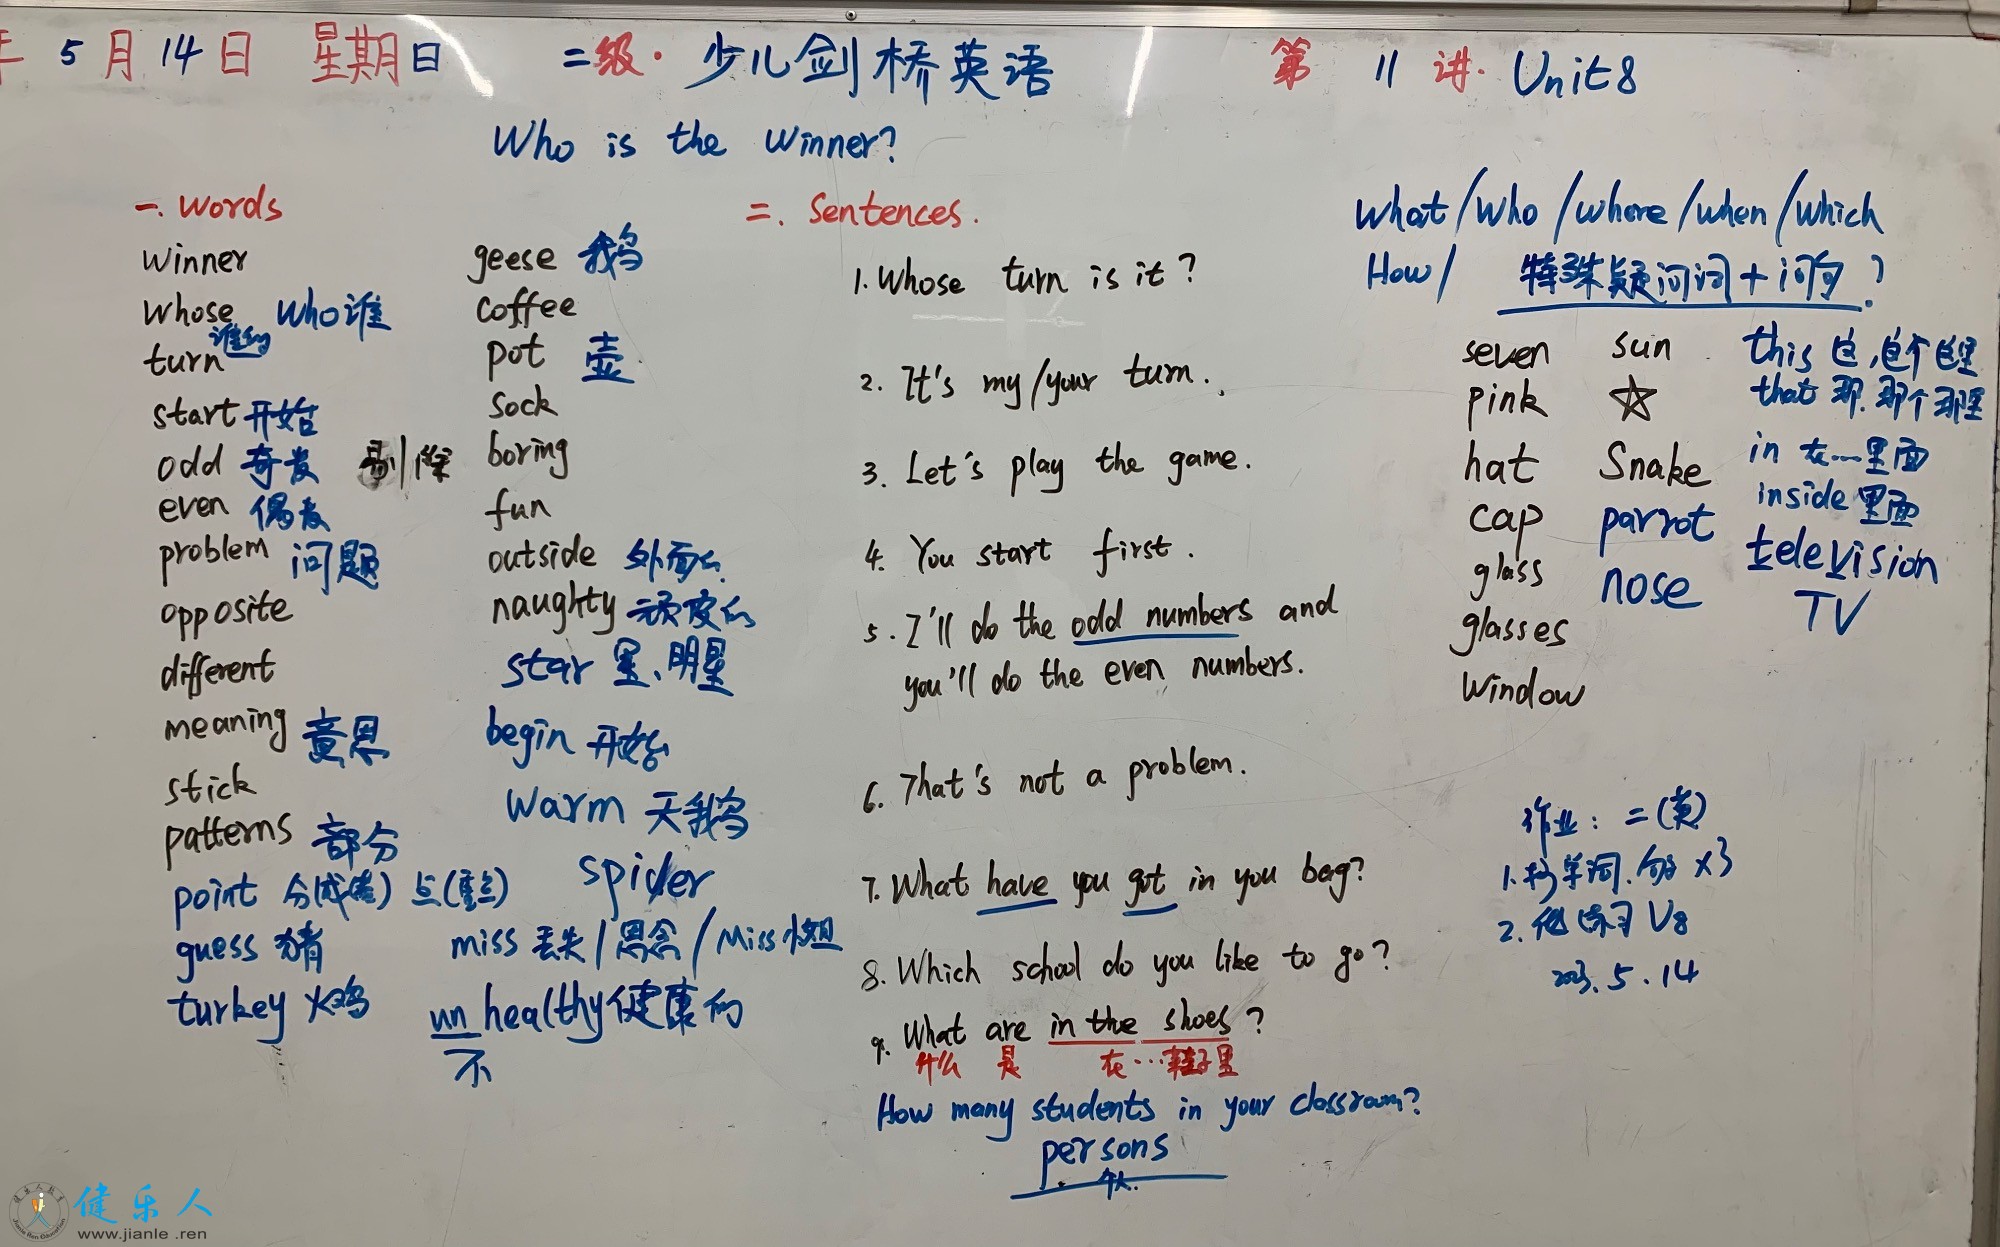 年 5 月 14 日 星期日 二级· 少儿剑桥英语 第 11 讲· Unit8
Who is the winner?
一. words
winner
whose 谁的 who 谁
turn
start 开始
odd 奇数
even 偶数
problem 问题
opposite
different
meaning 意思
stick
patterns 部分
point 分(成绩) 点(重点)
guess 猜
turkey 火鸡
geese 鹅
coffee
pot 壶
sock
boring
fun
outside 外面的
naughty 顽皮的
star 星、明星
begin 开始
warm 天鹅
spider
miss 丢失/思念/Miss小姐
un healthy 健康的
不
二. Sentences.
1. Whose turn is it?
2. It's my/your turn.
3. Let's play the game.
4. You start first.
5. I'll do the odd numbers and
you'll do the even numbers.
6. That's not a problem.
7. What have you got in you bag?
8. Which school do you like to go?
9. What are in the shoes?
什么 是 在…鞋子里
How many students in your classroom?
persons
what/who/where/when/which
How/ 特殊疑问词+问句?
seven
pink
hat
cap
glass
glasses
window
sun
☆
snake
parrot
nose
this 这,这个这里
that 那.那个那里
in 在…里面
inside 里面
television
TV
作业: 二(黄)
1. 抄单词.句 x3
2. 练习 V8
2023.5.14
健乐人
www.jianle.ren